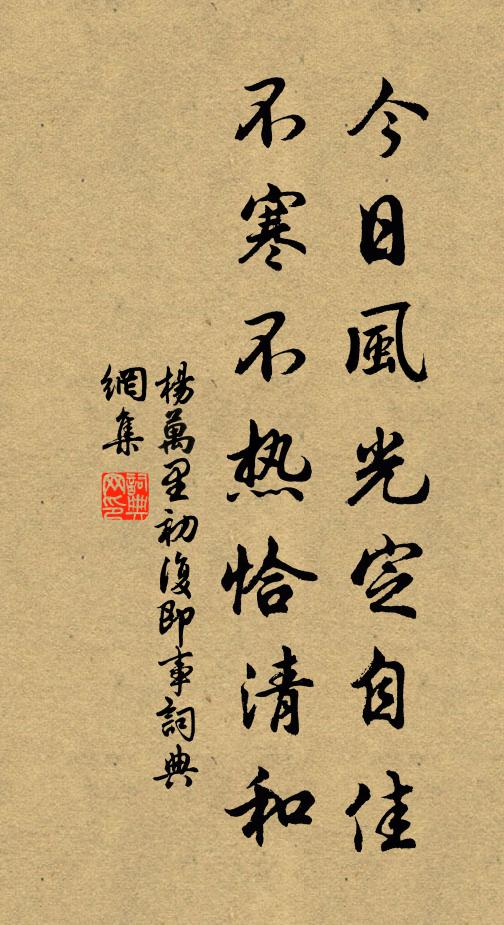 今日風光定自佳
不寒不热恰清和
楊萬里初復即事詞典
網集
詞典
网印